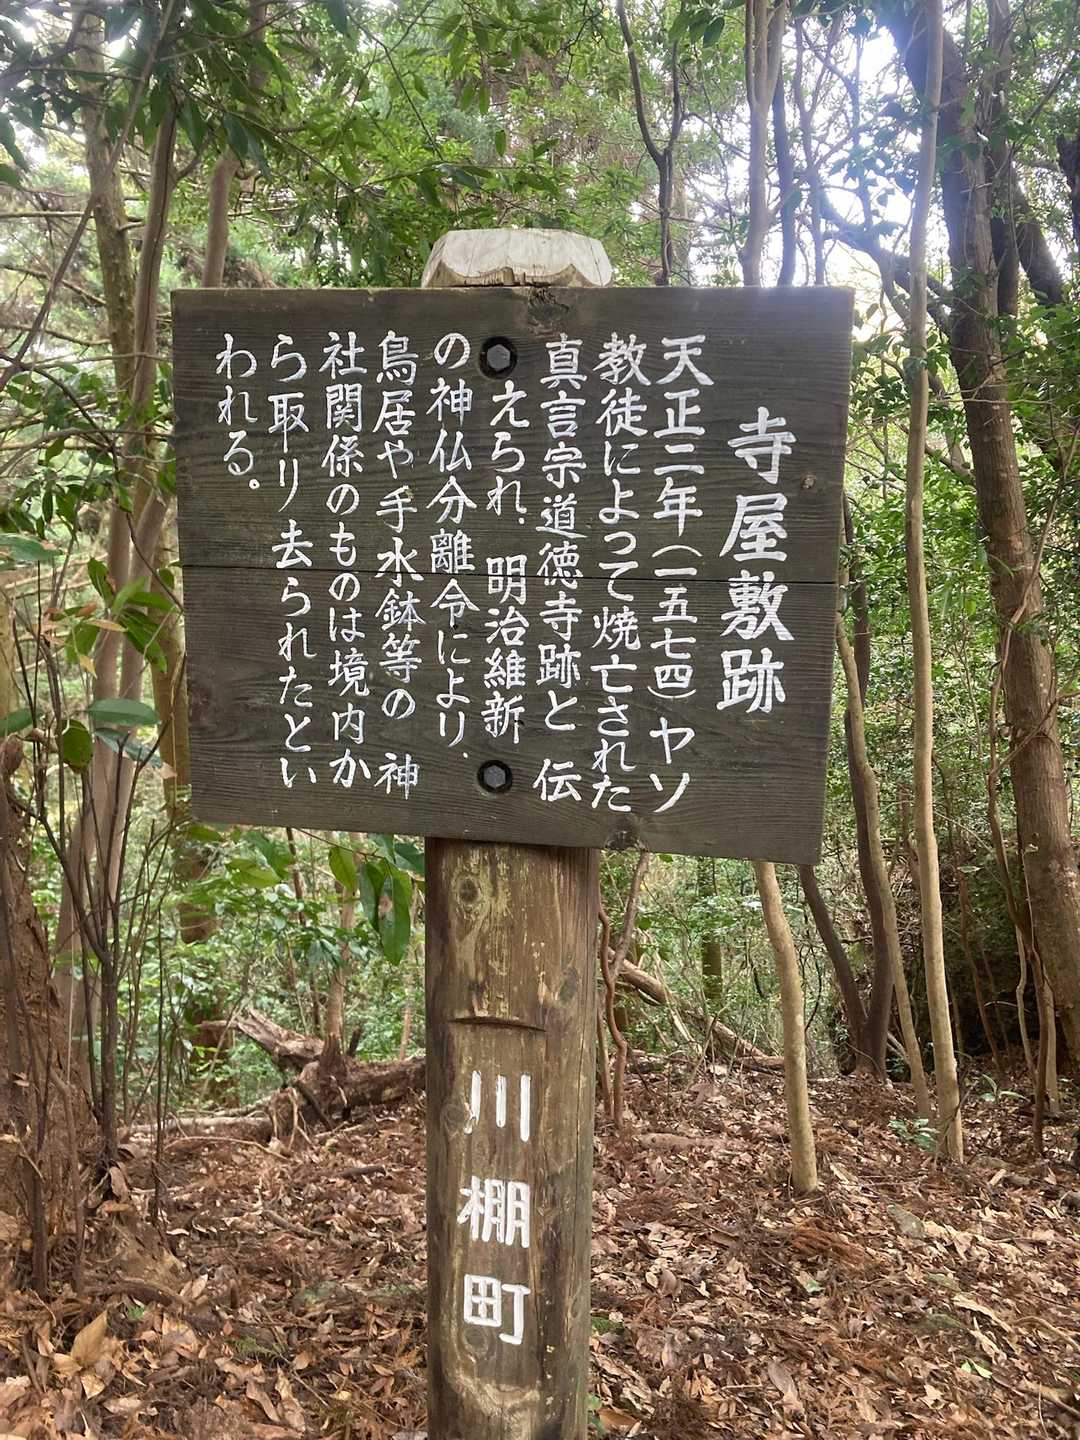 寺屋敷跡
天正二年(一五七四)ヤソ
教徒によって焼亡された
真言宗道徳寺跡と伝
えられ、明治維新
の神仏分離令により、
鳥居や手水鉢等の神
社関係のものは境内か
ら取り去られたとい
われる。
川棚町